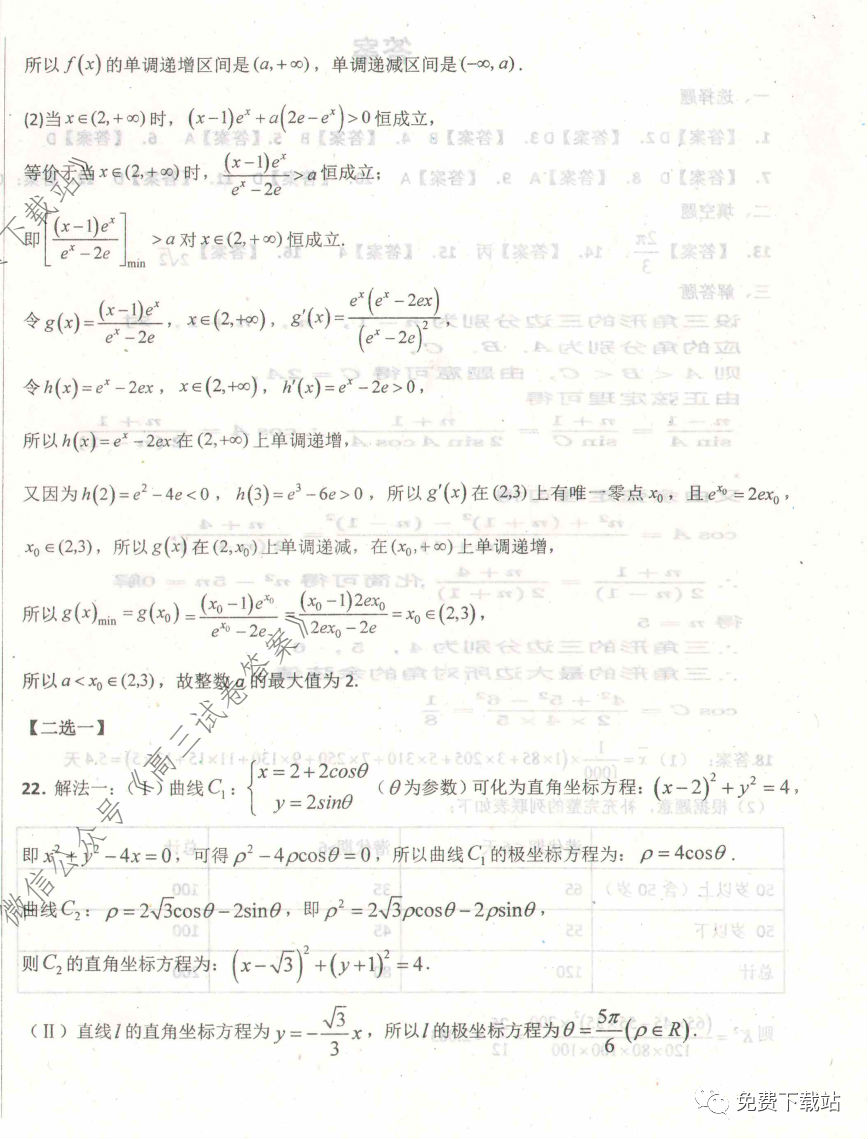 所以 f(x) 的单调递增区间是 (a,+∞)，单调递减区间是 (-∞,a).
(2)当 x∈(2,+∞) 时，(x-1)e^x + a(2e-e^x) > 0 恒成立，
等价于当 x∈(2,+∞) 时，(x-1)e^x / (e^x-2e) > a 恒成立；
即 [(x-1)e^x / (e^x-2e)]_min > a 对 x∈(2,+∞) 恒成立.
令 g(x) = (x-1)e^x / (e^x-2e)，x∈(2,+∞)，g′(x) = e^x(e^x-2ex) / (e^x-2e)^2，
令 h(x) = e^x-2ex，x∈(2,+∞)，h′(x) = e^x-2e > 0，
所以 h(x) = e^x-2ex 在 (2,+∞) 上单调递增，
又因为 h(2) = e^2-4e < 0，h(3) = e^3-6e > 0，所以 g′(x) 在 (2,3) 上有唯一零点 x_0，且 e^{x_0} = 2ex_0，
x_0∈(2,3)，所以 g(x) 在 (2,x_0) 上单调递减，在 (x_0,+∞) 上单调递增，
所以 g(x)_min = g(x_0) = (x_0-1)e^{x_0} / (e^{x_0}-2e) = (x_0-1)2ex_0 / (2ex_0-2e) = x_0∈(2,3)，
所以 a < x_0∈(2,3)，故整数 a 的最大值为 2.
【二选一】
22. 解法一：（Ⅰ）曲线 C_1：{x=2+2cosθ y=2sinθ （θ为参数）可化为直角坐标方程：(x-2)^2+y^2=4，
即 x^2+y^2-4x=0，可得 ρ^2-4ρcosθ=0，所以曲线 C_1 的极坐标方程为：ρ=4cosθ.
曲线 C_2：ρ=2√3cosθ-2sinθ，即 ρ^2=2√3ρcosθ-2ρsinθ，
则 C_2 的直角坐标方程为：(x-√3)^2+(y+1)^2=4.
（Ⅱ）直线 l 的直角坐标方程为 y=-√3/3 x，所以 l 的极坐标方程为 θ=5π/6 (ρ∈R).
微信公众号《高三试卷答案》
下载站》
免费下载站